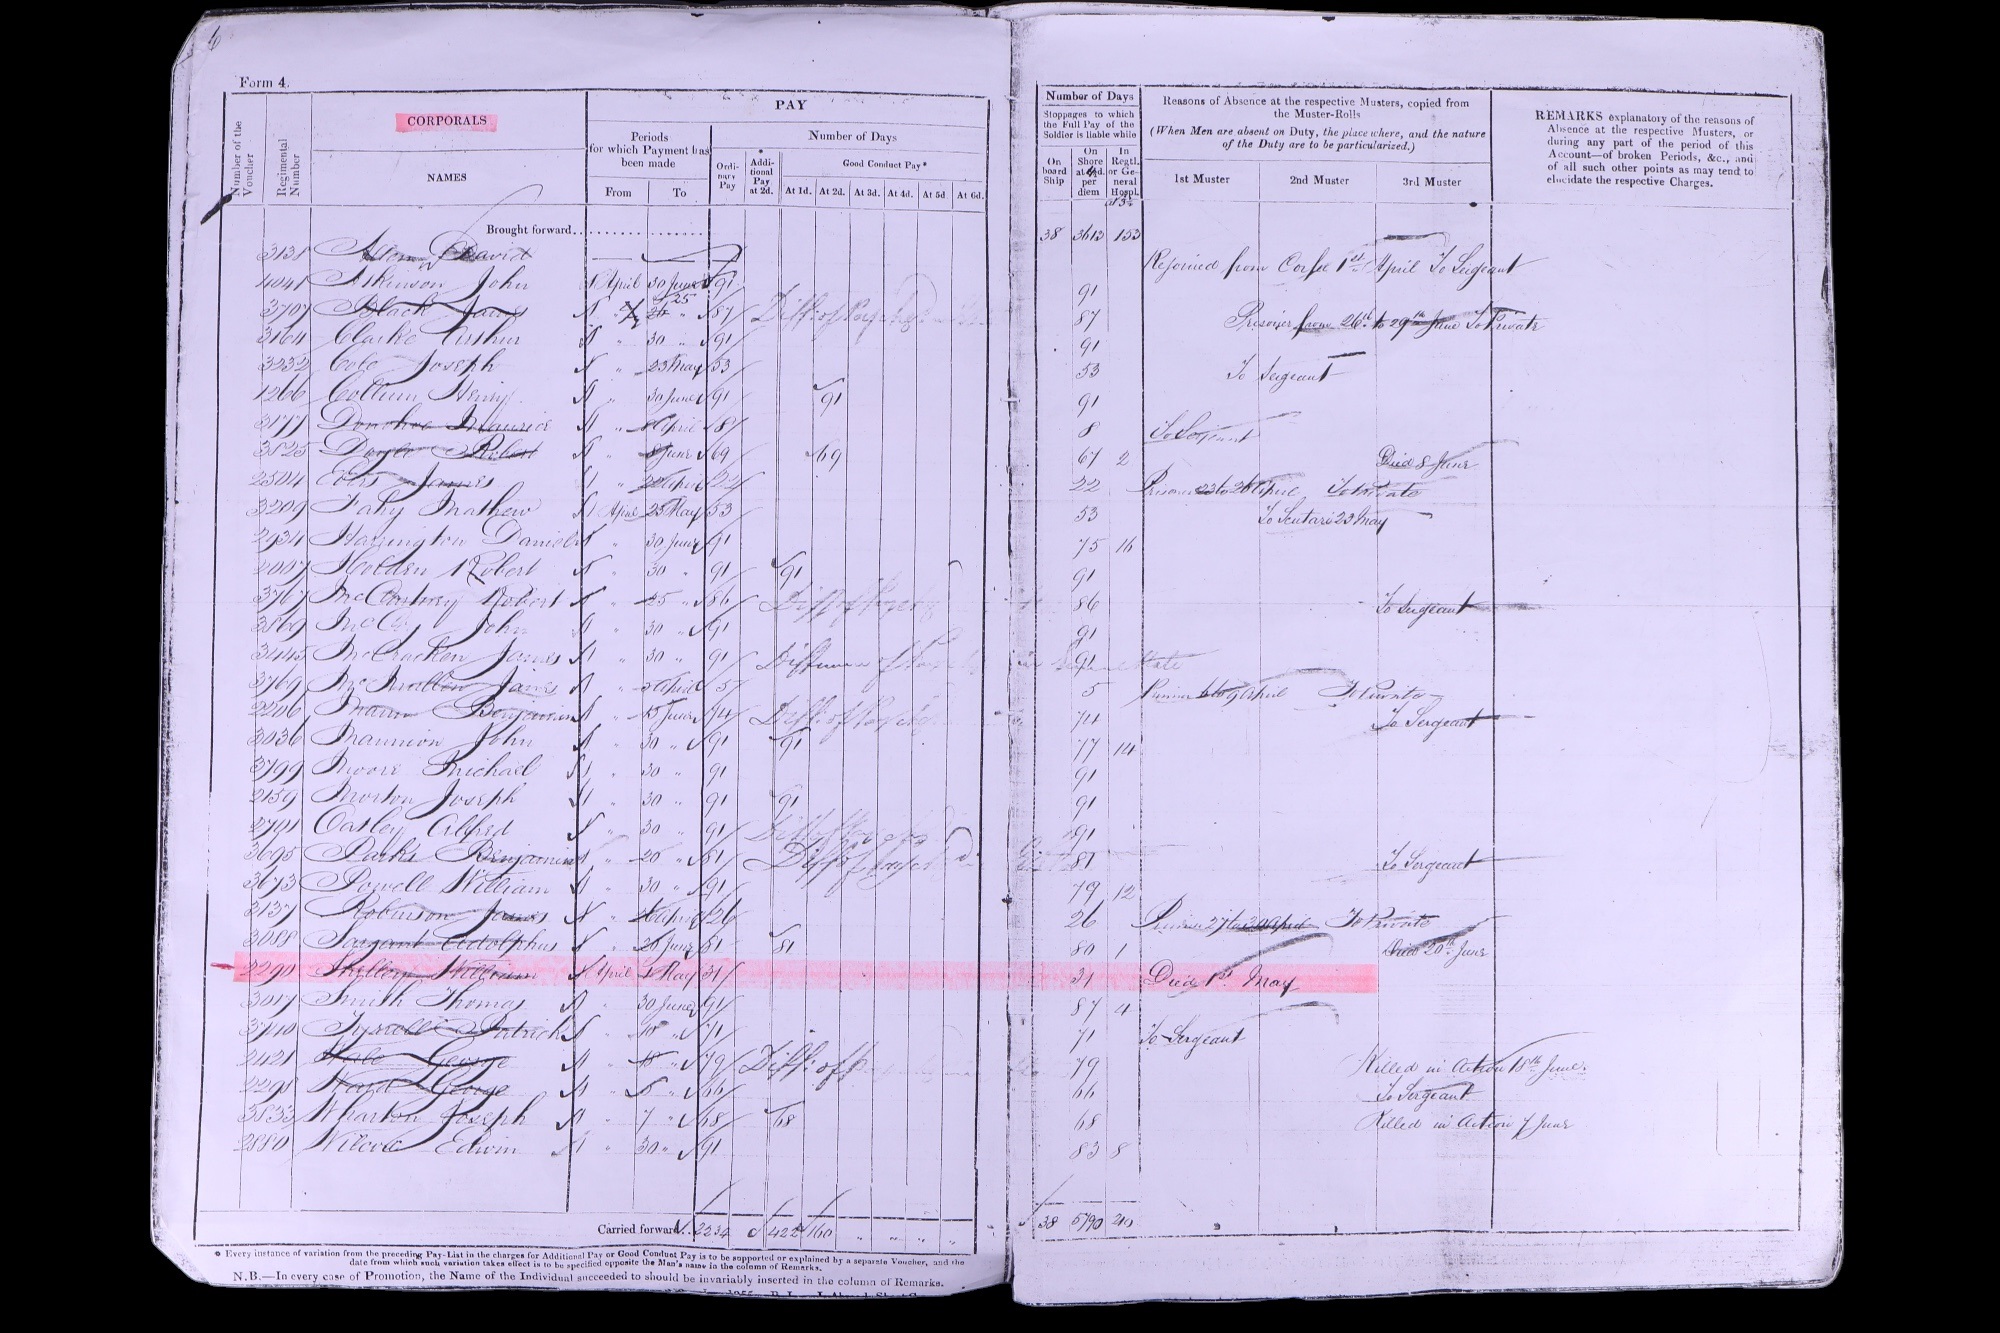 6
Form 4.
Number of the Voucher
Regimental Number
CORPORALS
NAMES
PAY
Periods for which Payment has been made
From To
Number of Days
Ordinary Pay
Additional Pay at 2d.
Good Conduct Pay*
At 1d. At 2d. At 3d. At 4d. At 5d At 6d.
Number of Days
Stoppages to which the Full Pay of the Soldier is liable while
On board Ship
On Shore at d. per diem
In Regtl. or General Hospl.
Reasons of Absence at the respective Musters, copied from the Muster-Rolls
(When Men are absent on Duty, the place where, and the nature of the Duty are to be particularized.)
1st Muster 2nd Muster 3rd Muster
REMARKS explanatory of the reasons of Absence at the respective Musters, or during any part of the period of this Account—of broken Periods, &c., and of all such other points as may tend to elucidate the respective Charges.
Brought forward 38 3613 153
3138 David Rejoined from Corfu 1st April To Sergeant
4041 Atkinson John 1 April 30 June 91 91
3707 Black James 25 87 87 Prisoner from 26th to 29th June To Private
3164 Clarke Arthur 30 91 91
3232 Cole Joseph 23 May 53 53 To Sergeant
1266 Henry 30 June 91 91 91
3177 Donohoe Maurice 8 April 8 8 To Sergeant
3825 Doyle Robert 8 June 69 69 67 2 Died 8 June
2504 James 22 April 22 22 Prisoner 23 to 26 April To Private
3209 Fahy Mathew April May 53 53 To Scutari 23 May
2934 Harrington Daniel 30 June 91 75 16
2007 Holden Robert 30 91 91 91
3767 McCartney Robert 25 86 86 To Sergeant
3869 John 30 91 91
3445 McCracken James 30 91 Difference of 91
3769 McMullen James 5 April 5 5 Prisoner 6 to 9 April To Private
2206 Mann Benjamin June 74 74 To Sergeant
3036 Mannion John 30 91 91 77 14
3799 Moore Michael 30 91 91
2159 Morton Joseph 30 91 91 91
2791 Oatley Alfred 30 91 91
3695 Parks Benjamin 20 81 81 To Sergeant
3673 Powell William 30 91 79 12
3137 Robinson James 26 April 26 26 Prisoner 27 to 30 April To Private
3088 Sargant Adolphus 20 June 81 81 80 1 Died 20th June
2290 William April 1 May 31 31 Died 1st May
3017 Smith Thomas 30 June 91 87 4
3740 Tyrrell Patrick 10 71 71 To Sergeant
2421 George 18 79 79 Killed in Action 18th June
2298 Ward George 5 66 66 To Sergeant
3833 Wharton Joseph 7 68 68 68 Killed in Action 7 June
2880 Wilcox Edwin 30 91 83 8
Carried forward 2234 422 160 38 5790 210
* Every instance of variation from the preceding Pay-List in the charges for Additional Pay or Good Conduct Pay is to be supported or explained by a separate Voucher, and the
date from which such variation takes effect is to be specified opposite the Man's name in the column of Remarks.
N.B.—In every case of Promotion, the Name of the Individual succeeded to should be invariably inserted in the column of Remarks.